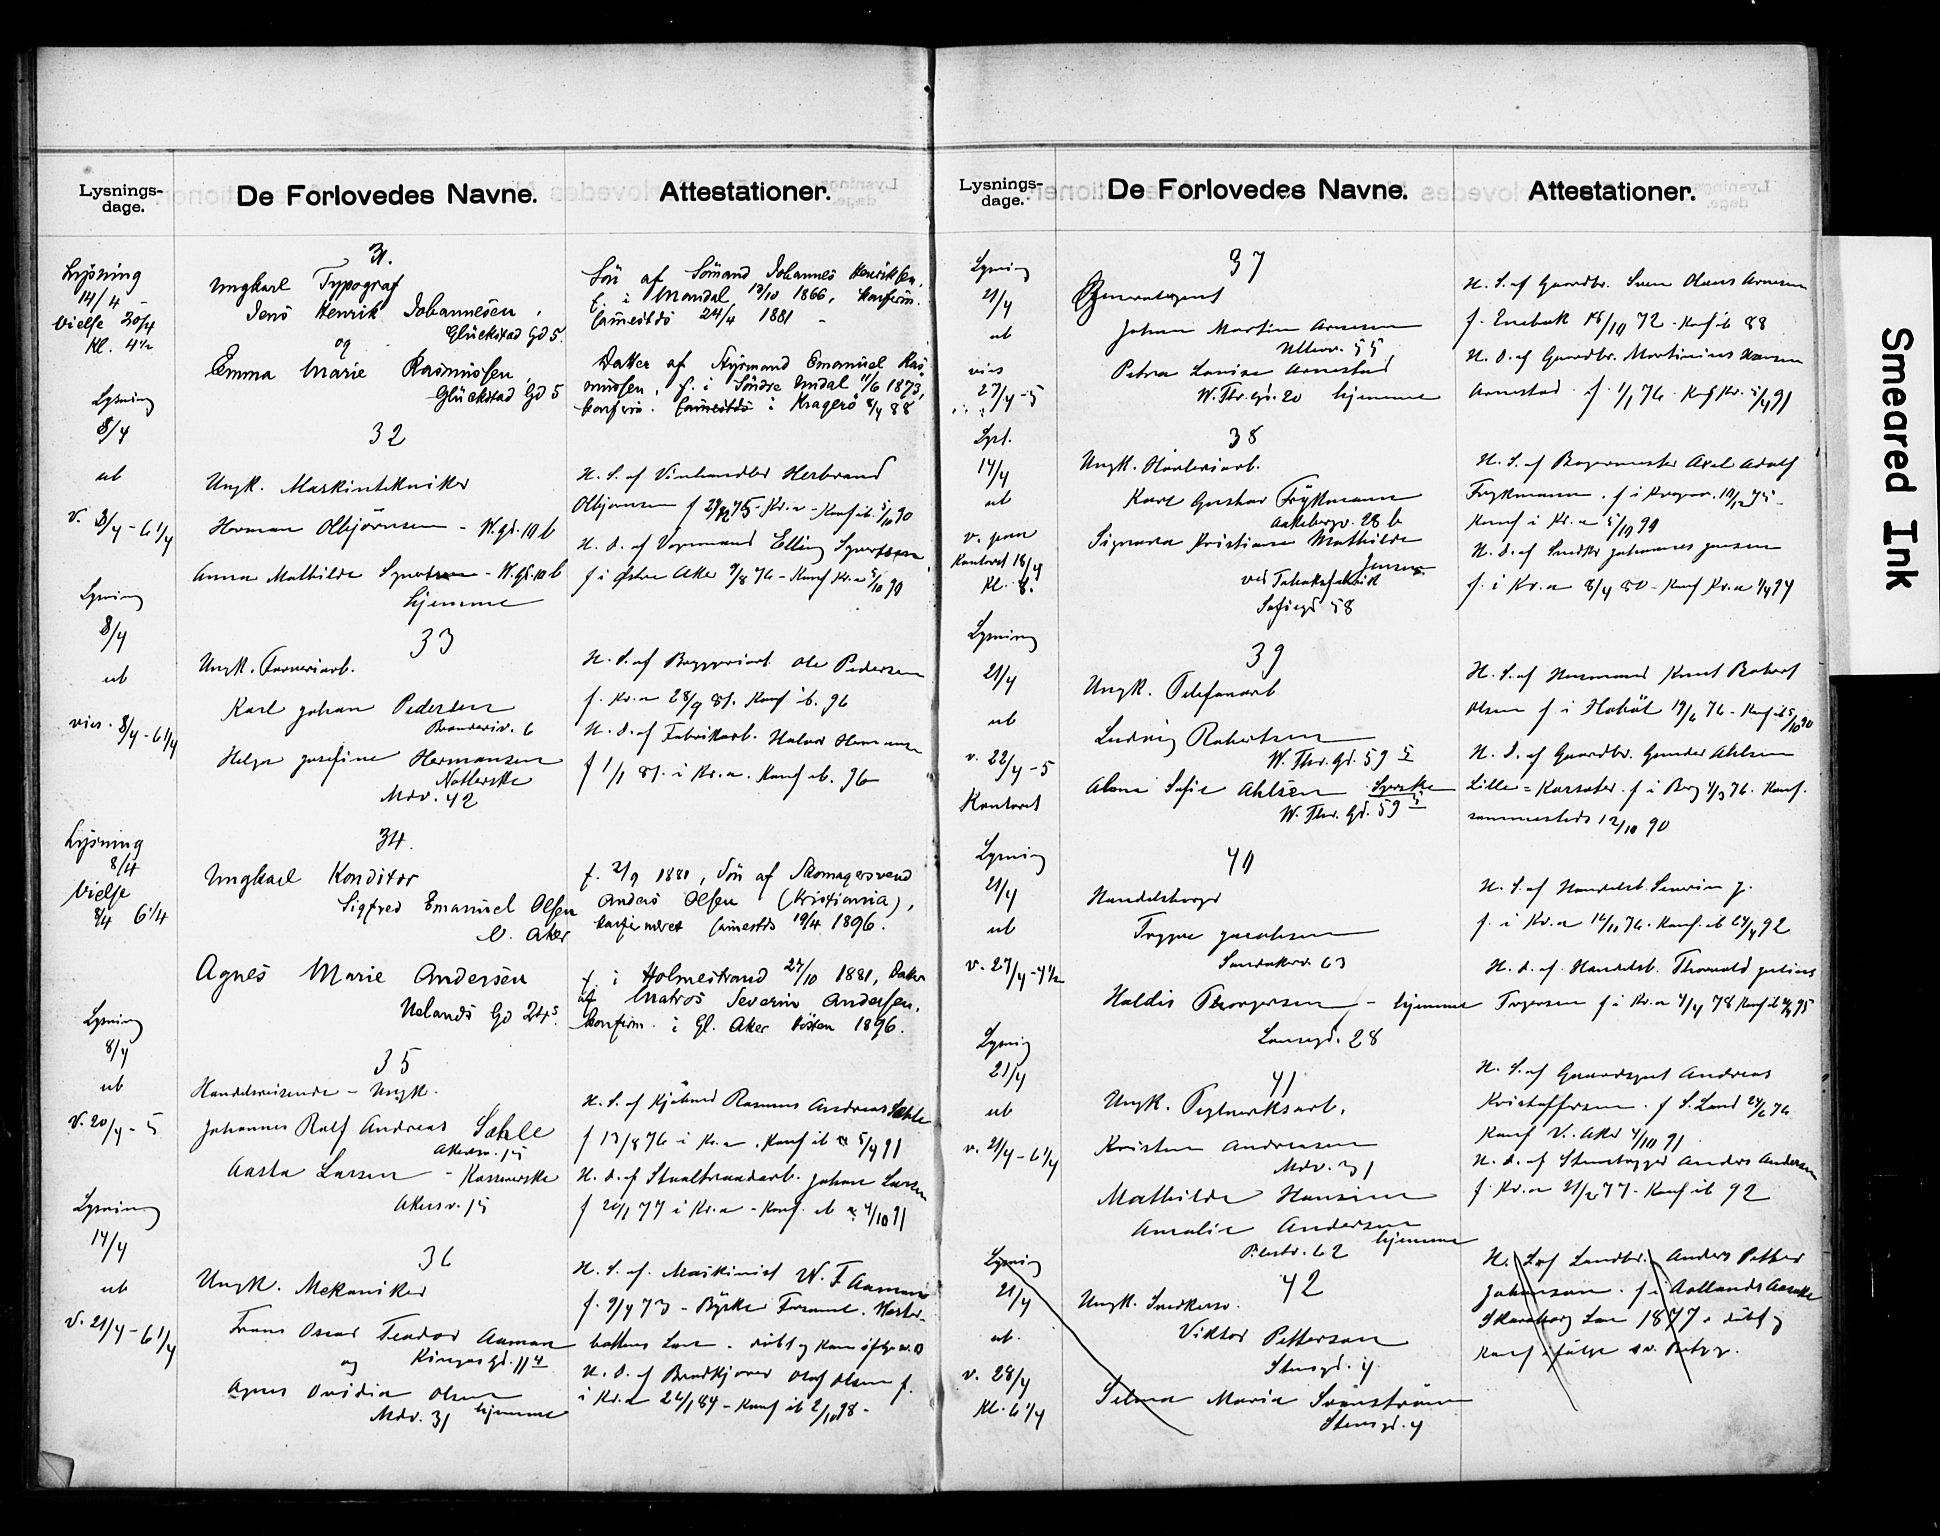 Lysnings-
dage.
De Forlovedes Navne.
Attestationer.
31.
Lysning
14/4
Vielse 20/4
Kl. 4 1/2
Ungkarl Typograf
Jens Henrik Johannesen,
Glückstad Gd 5.
og
Emma Marie Rasmussen,
Glückstad Gd 5
Sön af Sömand Johannes Henriksen,
f. i Mandal 13/10 1866, konfirm.
samesteds 24/4 1881
Datter af Styrmand Emanuel Ras-
mussen, f. i Söndre Undal 11/6 1873,
konfirm. samesteds i Kragerö 8/4 88
Lysning
8/4
ub
v. 8/4 - 6 1/4
32
Ungk. Maskintekniker
Herman Olbjörnsen - W. gd. 10 b
Anna Mathilde - W. gd. 10 b
hjemme
N. S. af Vinhandler Herbrand
Olbjörnsen f - Kr.a - Konf ib 5/10 90
N. D. af Vognmand Elling
f i Østre Aker 9/8 76 - Konf Kr.a 5/10 90
Lysning
8/4
ub
vies. 8/4 - 6 1/4
33
Ungk. Farveriarb.
Karl Johan Pedersen
Brenneriv. 6
Helga Josefine Hermansen
Mdv. 42
N. S. af Bryggeriarb Ole Pedersen
f. Kr.a 28/9 81. Konf ib. 96
N. D. af Fabrikarb. Halvor Hermansen
f 1/1 81. i Kr.a. Konf ib. 96
Lysning
8/4
Vielse
8/4 6 1/4
34.
Ungkarl Konditor
Sigfred Emanuel Olsen
V. Aker
Agnes Marie Andersen
Uelands Gd
f. 2/9 1881, Sön af Skomagersvend
Anders Olsen (Kristiania),
konfirmeret samesteds 19/4 1896.
f. i Holmestrand 27/10 1881, Datter
af Matros Severin Andersen.
konfirm. i Gl. Aker hösten 1896.
Lysning
8/4
ub
v. 20/4 - 5
35
Handelsreisende - Ungk.
Johannes Rolf Andreas Sæhle
Akersv. 15
Aasta Larsen - Kassererske
Akersv. 15
N. S. af Kjöbmd Rasmus Andreas Sæhle
f 13/8 76 i Kr.a. Konf ib 5/4 91
N. D. af Staaltraadarb. Johan Larsen
f 20/1 77 i Kr.a - Konf. ib 4/10 91
Lysning
14/4
ub
v. 21/4 - 6 1/4
36
Ungk. Mekaniker
Frans Oscar Teodor Aaman
og
Agnes Ovidia Olsen
Mdv. 31 hjemme
N. S. af. Maskinist W. F. Aaman
f. 9/4 73 - Byske Forsaml. Wester-
bottens Læn - döbt og konf
N. D. af Olaf Olsen f.
i Kr.a 24/1 84 - Konf ib 2/10 98 -
Lysnings-
dage.
De Forlovedes Navne.
Attestationer.
Lysning
21/4
ub
vies
27/4 - 5
37
Generalagent
Johan Martin Arnesen
Ullev. 55
Petra Louise Arnestad
W. Thr. gd. 20 hjemme
N. S. af Gaardbr. Sven Olaus Arnesen
f. Enebak 18/10 72 - Konf ib 88
N. D. af Gaardbr. Martinius Hansen
Arnestad. f. 1/1 76. Konf Kr. 5/4 91
Lyst.
14/4
ub
v. paa
Kontoret 18/4
Kl. 8.
38
Ungk.
Karl Gustav Frykmann
Aakebergv. 28 b
Signora Kristiane Mathilde
Jensen
ved Tobaksfabrik
Sofiegd 58
N. S. af Bagermester Axel Adolf
Frykmann. f i
Konf i Kr.a 5/10 90
N. D. af Snedker Johannes Jensen
f. i Kr.a 8/4 80 - Konf Kr.a 1/4 94
Lysning
21/4
ub
v. 22/4 - 5
Kontoret
39
Ungk. Telefonarb
Ludvig Robertsen
W. Thr. Gd. 59 5
Alma Sofie Ahlsen Syerske
W. Thr. Gd. 59 5
N. S. af Husmand Knut Robert
Olsen f i Haböl 19/6 76 - Konf ib 5/10 90
N. D. af Gaardbr. Gunder Ahlsen
Lille = f i Berg 4/3 76. Konf.
sammesteds 12/10 90
Lysning
21/4
ub
v. 27/4 - 4 1/2
40
Handelsborger
Trygve Jacobsen
Sandakerv. 63
Haldis Thorgersen - hjemme
28
N. S. af Handelsb. Severin J.
f. i Kr.a 16/11 76. Konf. ib 24/4 92
N. D. af. Handelsb. Thorvald Julius
f i Kr.a 4/4 78 Konf ib 95
Lysning
21/4
ub
v. 21/4 - 6 1/4
41
Ungk. Teglverksarb.
Kristen Andreasen
Mdv. 31
Mathilde Hansine
Amalie Andersen
Pilestr. 62 hjemme
N. S. af Gaardsgut Andreas
Kristoffersen. f S. Land 24/6 76
Konf V. Aker 4/10 91
N. D. af Stenhugger Anders Andersen
f. Kr.a 21/2 77 - Konf ib 92
Lysning
21/4
ub.
v. 28/4
Kl. 6 1/4
42
Ungk. Snedkersv.
Viktor Petterson
Stensgd. 4
Selma Maria Svanström
Stensgd. 4
N. S. af Landbr. Anders Petter
Johanson. f i
Skaraborg Læn 1877 - döbt og
Konf ifölge sv. Betyg.
Smeared Ink